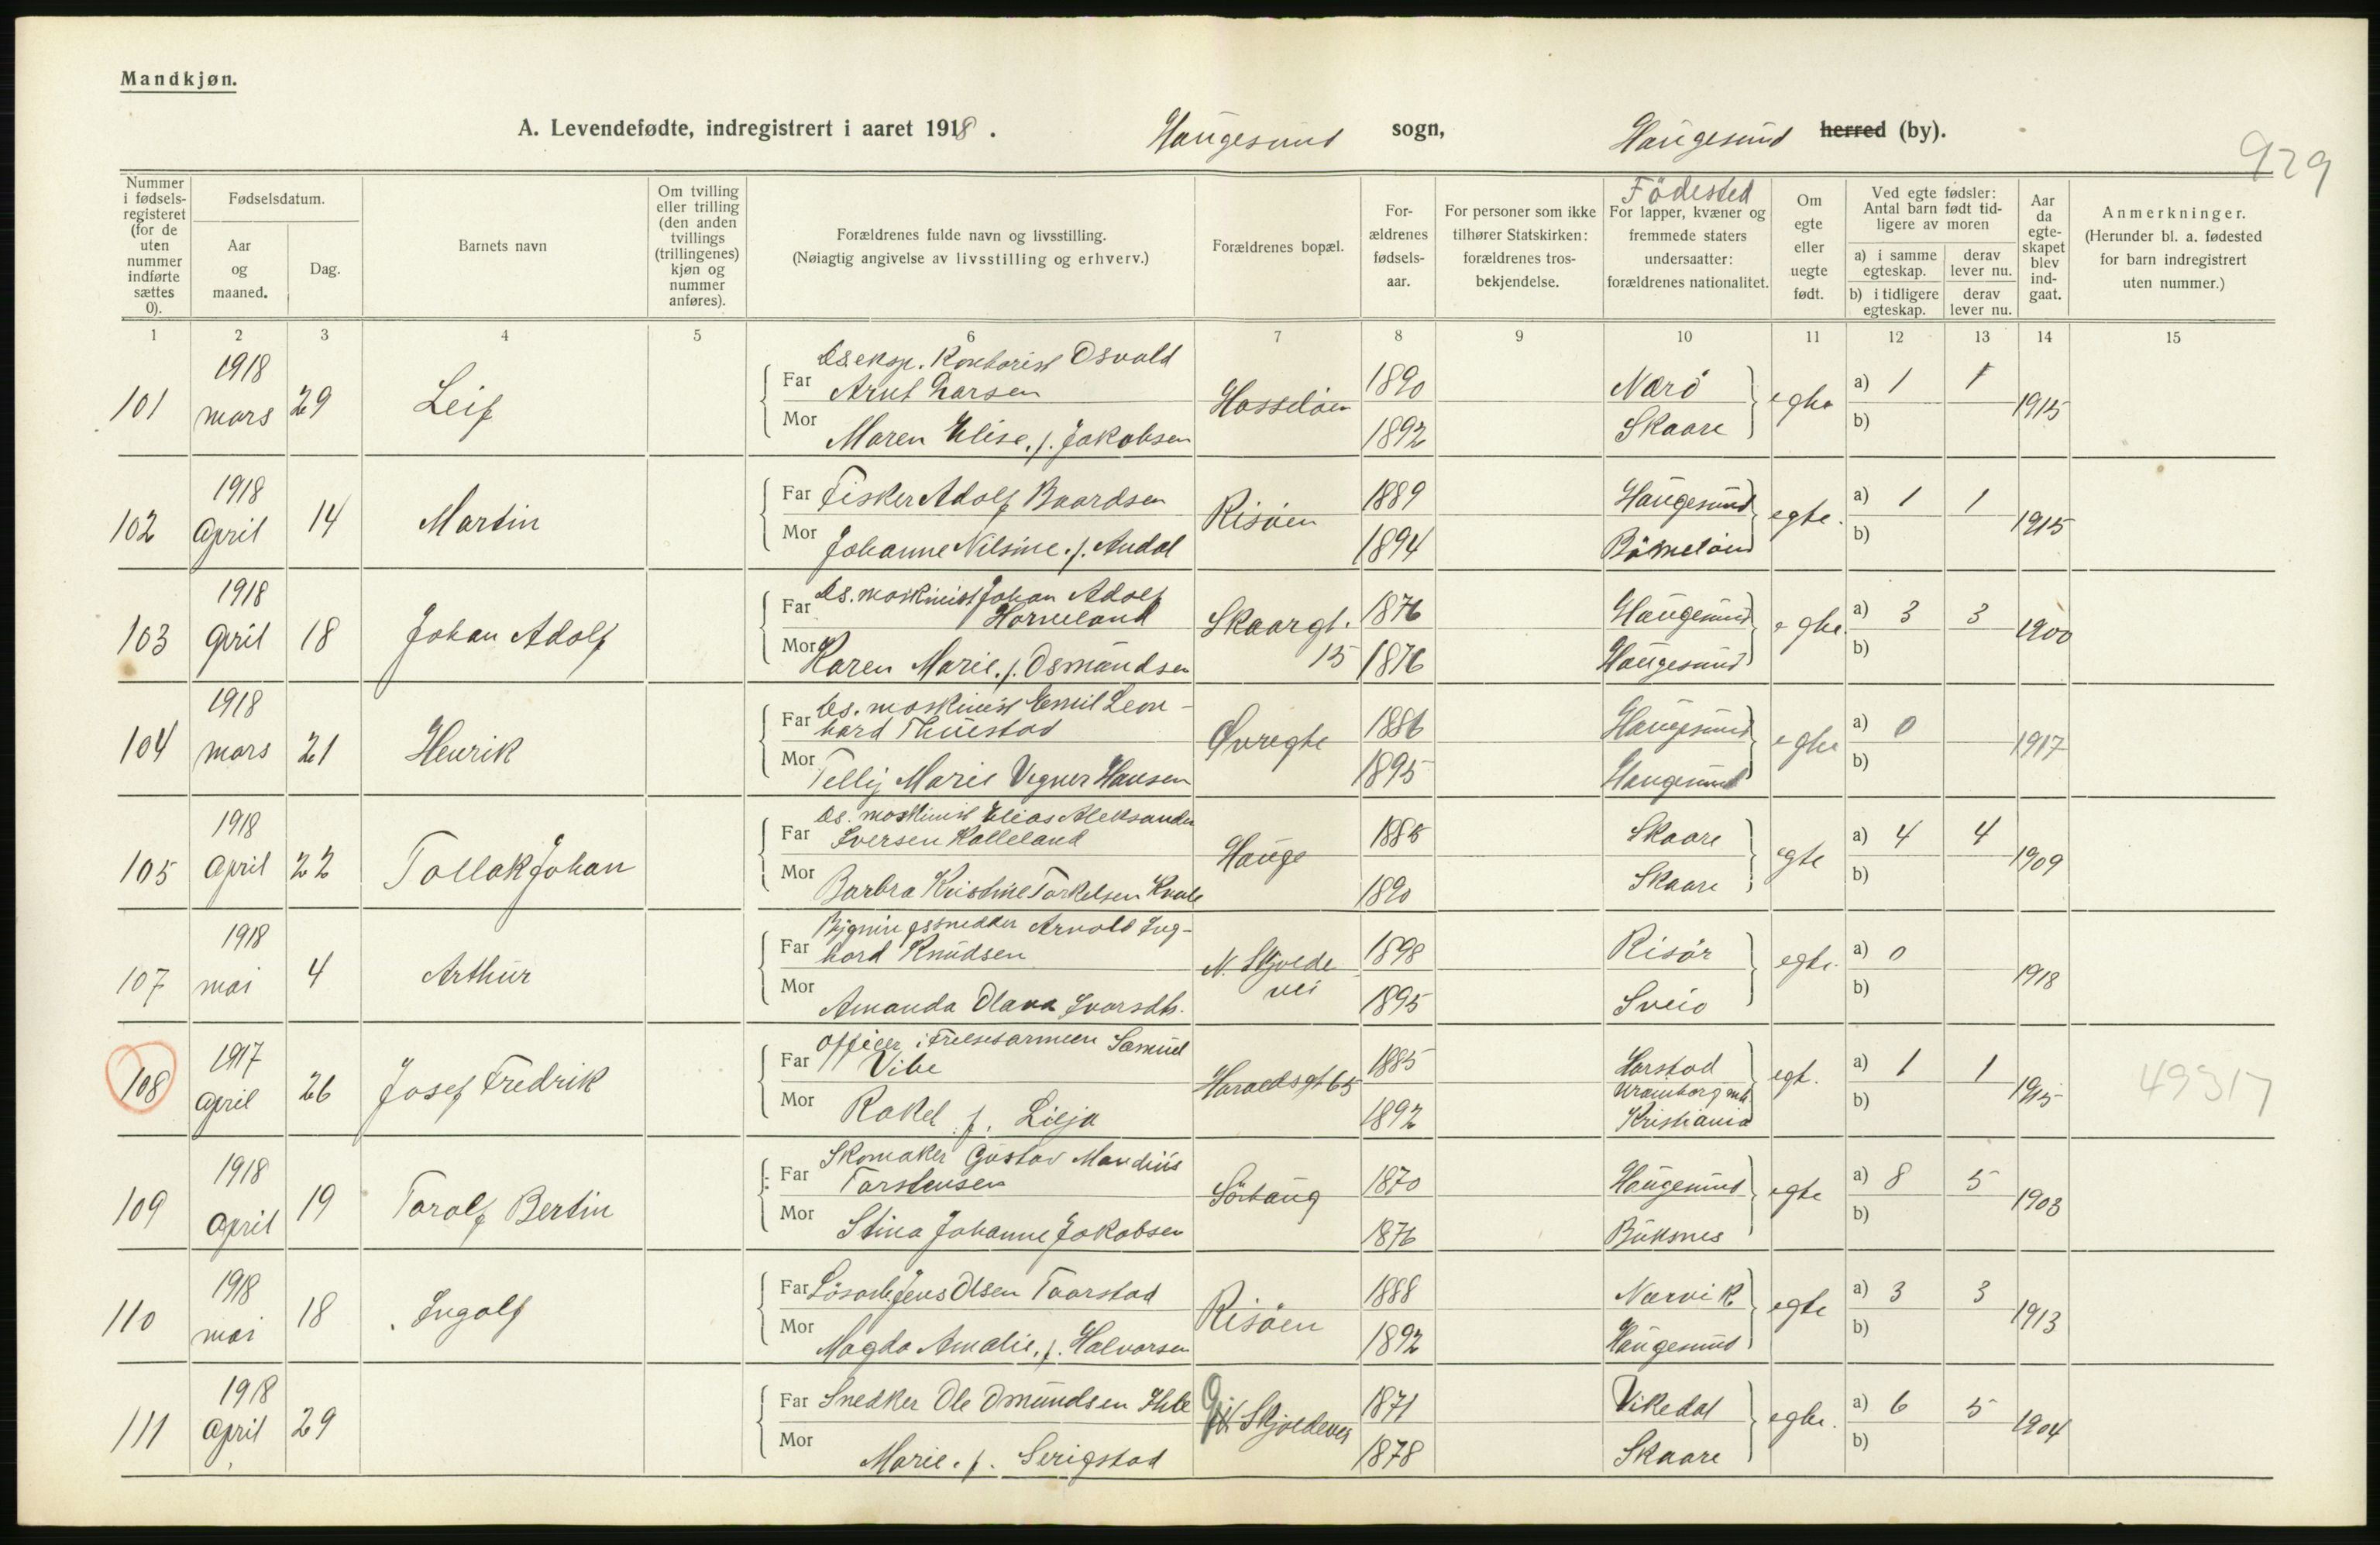 Mandkjøn.
A. Levendefødte, indregistrert i aaret 1918. Haugesund sogn, Haugesund herred (by).
929
Nummer i fødsels-registeret (for de uten nummer indførte sættes 0).
Fødselsdatum.
Aar og maaned.
Dag.
Barnets navn
Om tvilling eller trilling (den anden tvillings (trillingenes) kjøn og nummer anføres).
Forældrenes fulde navn og livsstilling.
(Nøiagtig angivelse av livsstilling og erhverv.)
Forældrenes bopæl.
For-ældrenes fødsels-aar.
For personer som ikke tilhører Statskirken: forældrenes tros-bekjendelse.
Födested
For lapper, kvæner og fremmede staters undersaatter: forældrenes nationalitet.
Om egte eller uegte født.
Ved egte fødsler: Antal barn født tid-ligere av moren
a) i samme egteskap.
derav lever nu.
b) i tidligere egteskap.
derav lever nu.
Aar da egte-skapet blev ind-gaat.
Anmerkninger.
(Herunder bl. a. fødested for barn indregistrert uten nummer.)
1 2 3 4 5 6 7 8 9 10 11 12 13 14 15
101 1918 mars 29 Leif
Far Ds.eksp. Kontorist Osvald Arnt Larsen
Mor Maren Elise, f. Jakobsen
Hasseløen 1890 1892 Nærö Skaare egte a) 1 1 b) 1915
102 1918 April 14 Martin
Far Fisker Adolf Baardsen
Mor Johanne Nilsine, f. Andal
Risøen 1889 1894 Haugesund egte. a) 1 1 b) 1915
103 1918 April 18 Johan Adolf
Far Ds. maskinist Johan Adolf Horneland
Mor Karen Marie, f. Osmundsen
Skaargt. 15 1876 1876 Haugesund Haugesund egte. a) 3 3 b) 1900
104 1918 mars 21 Henrik
Far Ds. maskinist Emil Leon-hard Thuestad
Mor Marie Vegner Hansen
Øvregte 1886 1895 Haugesund Haugesund egte a) 0 b) 1917
105 1918 April 22 Tollak Johan
Far Ds. maskinist Elias Aleksander Iversen Kolleland
Mor Barbra Kristine Torkelsen Kvale
Hauge 1885 1890 Skaare Skaare egte a) 4 4 b) 1909
107 1918 mai 4 Arthur
Far Bygningssnedker Arnold Ing-hard Knudsen
Mor Amanda Olava Ivarsdtr.
N. Skjolde vei 1898 1895 Risör Sveio egte. a) 0 b) 1918
108 1917 April 26 Josef Fredrik
Far Officer i Frelsesarmeen Samuel Vibe
Mor Rakel f. Lilja
Haraldsgt 65 1885 1892 Harstad Kristiania egt. a) 1 1 b) 1915 49317
109 1918 April 19 Torolf Bertin
Far Skomaker Gustav Mandius Torstensen
Mor Stina Johanne Jakobsen
Sörhaug 1870 1876 Haugesund Buksnes egte a) 8 5 b) 1903
110 1918 mai 18 Ingolf
Far Lösarb. Jens Olsen Taarstad
Mor Magda Amalie, f. Halvorsen
Risøen 1888 1892 Narvik Haugesund egte a) 3 3 b) 1913
111 1918 April 29
Far Snedker Ole Omundsen Hule
Mor Marie, f. Serigstad
Skjoldevei 1871 1878 Vikedal Skaare egte. a) 6 5 b) 1904